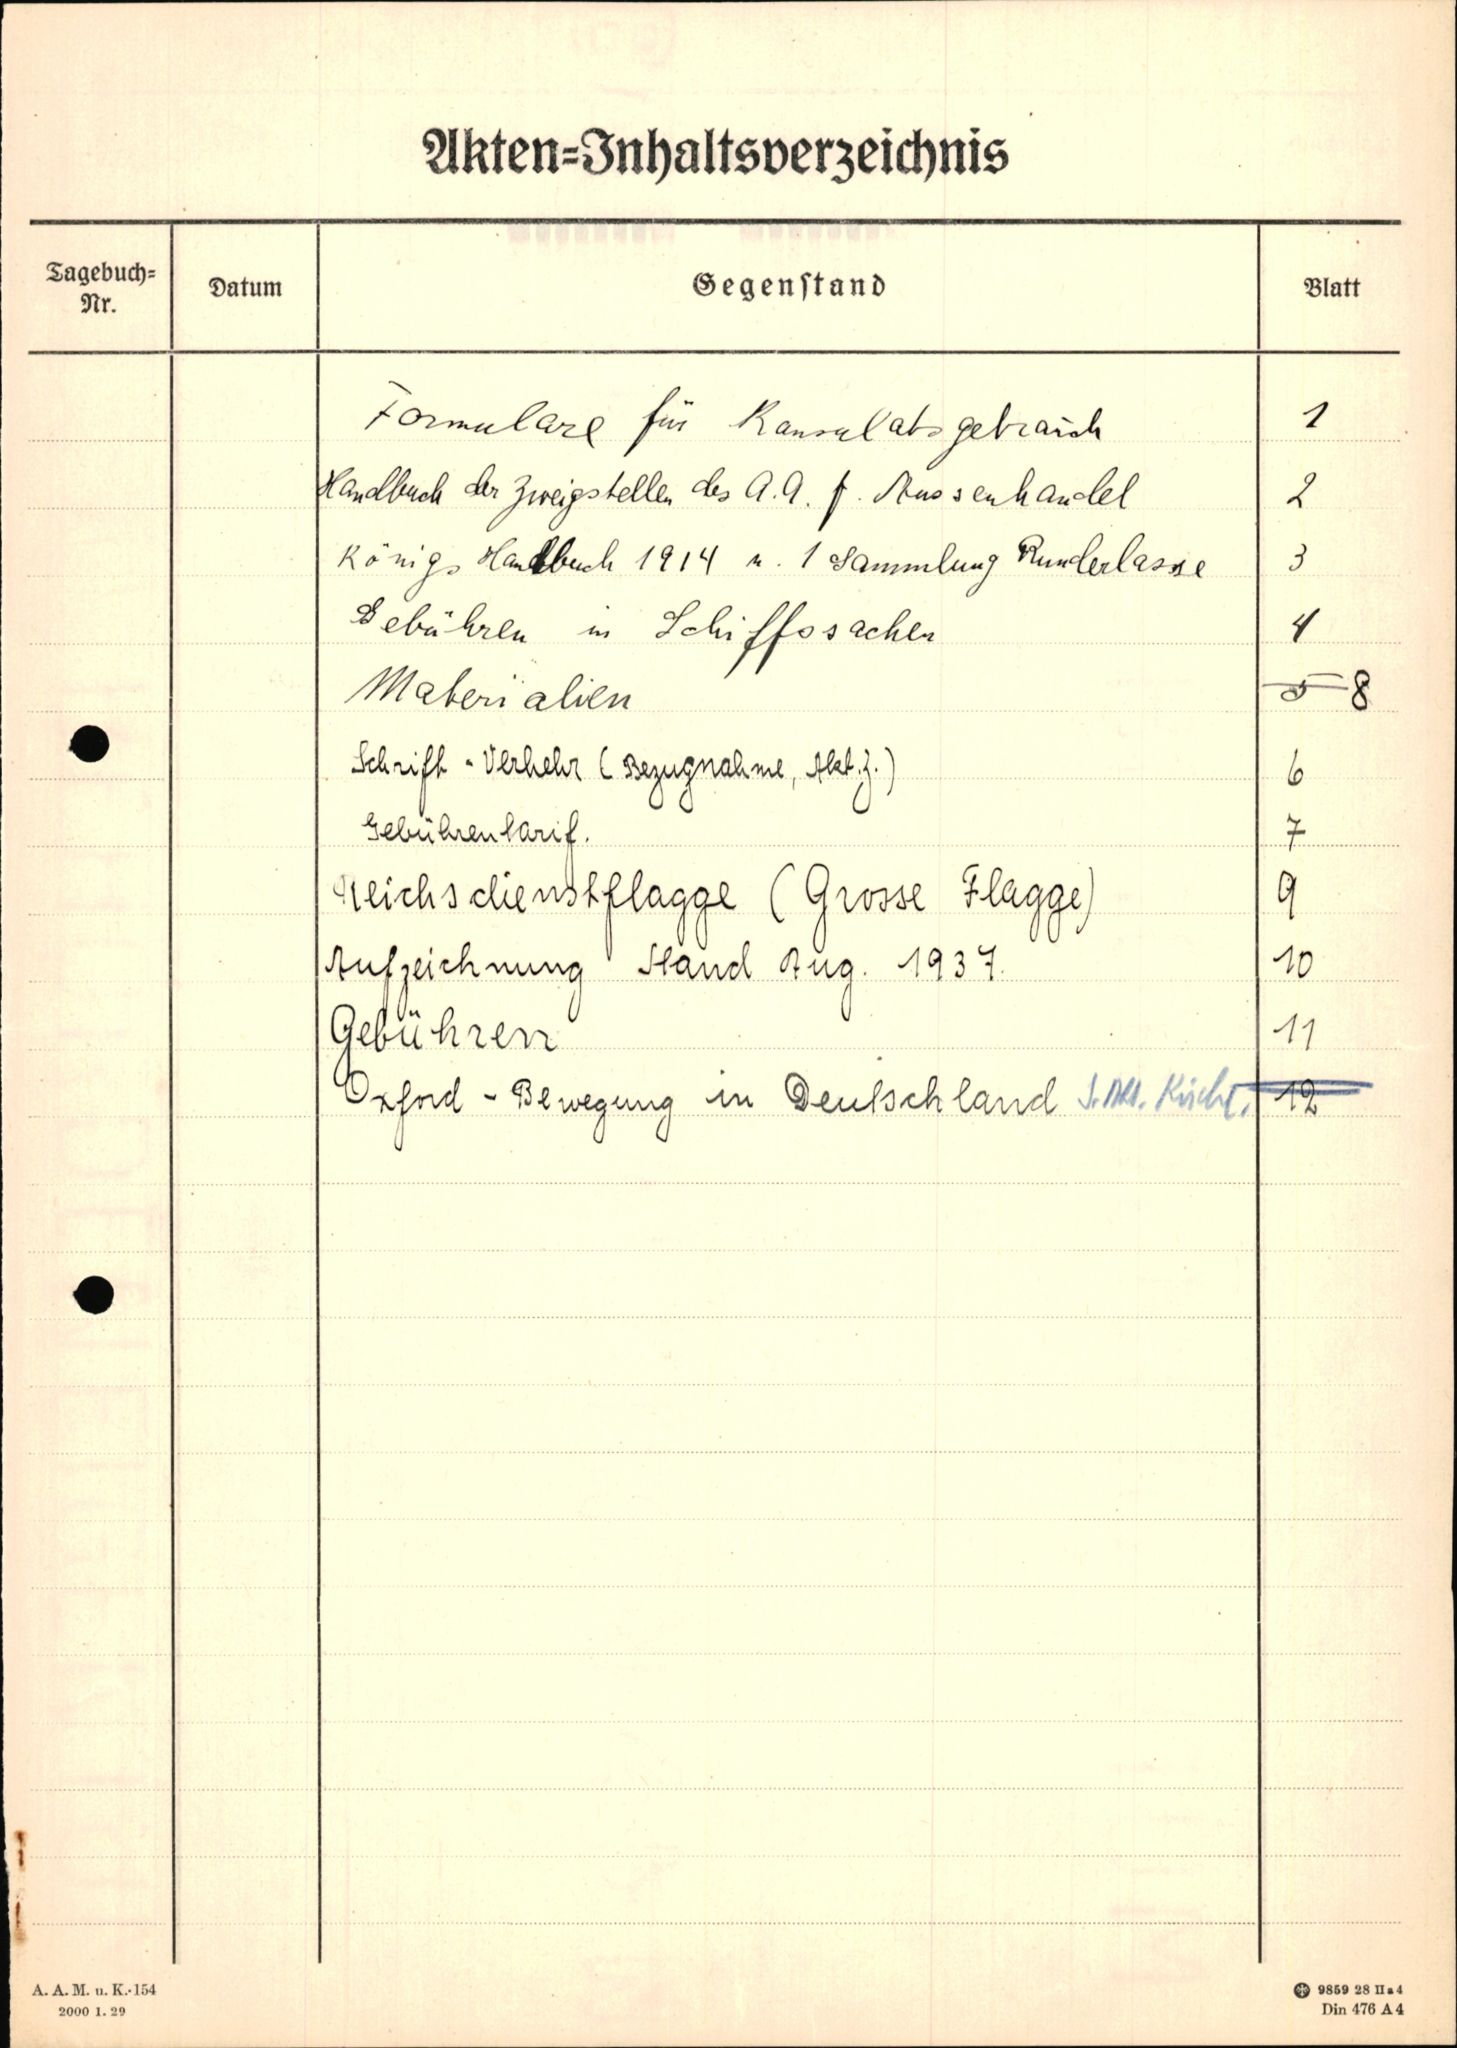 Akten-Inhaltsverzeichnis
Tagebuch-
Nr.
Datum
Gegenstand
Blatt
Formulare für Konsulatsgebrauch 1
Handbuch der Zweigstellen des A.A. f. Aussenhandel 2
Königs Handbuch 1914 u. 1 Sammlung Runderlasse 3
Gebühren in Schiffssachen 4
Materialien 5 8
Schrift-Verkehr (Bezugnahme, Akt.z.) 6
Gebührentarif. 7
Reichsdienstflagge (Grosse Flagge) 9
Aufzeichnung Stand Aug. 1937. 10
Gebühren 11
Oxford-Bewegung in Deutschland s. Akt. Kirche. 12
A. A. M. u. K.-154
2000 1. 29
9859 28 II a 4
Din 476 A 4